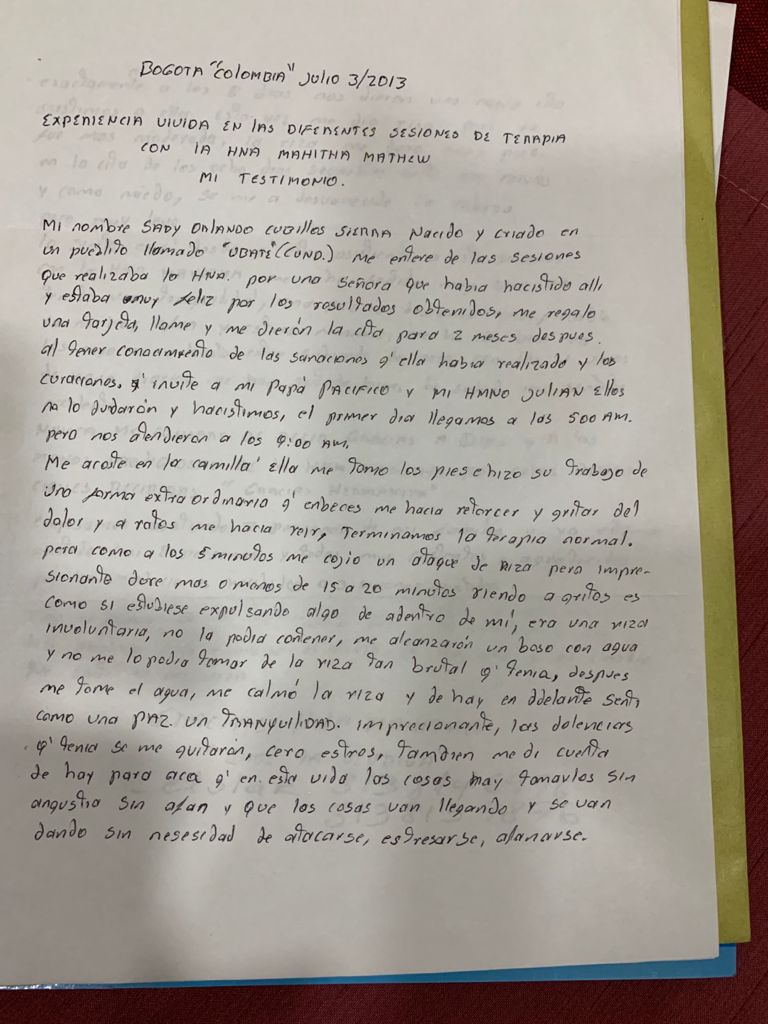 BOGOTA "COLOMBIA" JULIO 3/2013
EXPERIENCIA VIVIDA EN LAS DIFERENTES SESIONES DE TERAPIA
CON LA HNA MAHITHA MATHEW
MI TESTIMONIO.
Mi nombre SADY ORLANDO CUBILLOS SIERRA Nacido y criado en
un pueblito llamado "UBATE" (CUND.) me entere de las sesiones
que realizaba la HNA. por una señora que habia hacistido alli
y estaba muy feliz por los resultados obtenidos, me regalo
una tarjeta, llame y me dierón la cita para 2 meses despues.
al tener conocimiento de las sanaciones q' ella habia realizado y las
curaciones. invite a mi Papá PACIFICO y MI HMNO JULIAN Ellos
no lo dudarón y hacistimos, el primer dia llegamos a las 500 AM.
pero nos atendieron a las 9:00 AM.
Me acoste en la camilla ella me tomo los pies e hizo su trabajo de
una forma extraordinaria q' enbeces me hacia retorcer y gritar del
dolor y a ratos me hacia reir, Terminamos la terapia normal.
pero como a los 5 minutos me cojio un ataque de Riza pero impre-
sionante dure mas o menos de 15 a 20 minutos riendo a gritos es
como si estubiese expulsando algo de adentro de mí, era una riza
involuntaria, no la podia contener, me alcanzarón un baso con agua
y no me lo podia tomar de la riza tan brutal q' tenia, despues
me tome el agua, me calmó la riza y de hay en ddelante senti
como una PAZ. un TRANQUILIDAD. imprecionante, las dolencias
q' tenia se me quitarón, cero estros, tambien me di cuenta
de hay para aca q' en esta vida las cosas hay tomarlos sin
angustia sin afan y que las cosas van llegando y se van
dando sin nesesidad de atacarse, estresarse, afanarse.